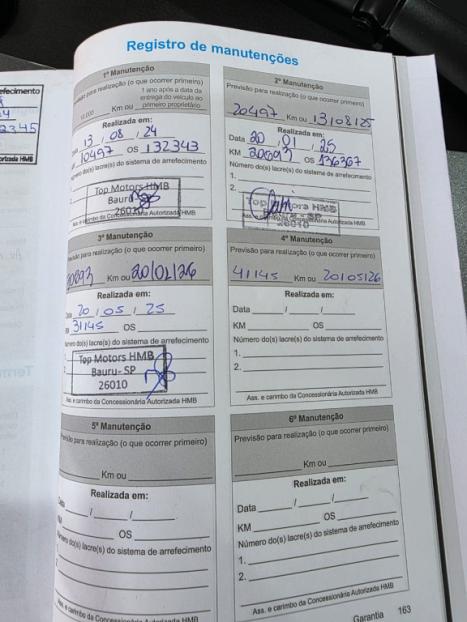 Registro de manutenções
1ª Manutenção
Previsão para realização (o que ocorrer primeiro)
10.000 Km ou 1 ano após a data da entrega do veículo ao primeiro proprietário
Realizada em:
Data 13 / 08 / 24
10497 OS 132343
Número do(s) lacre(s) do sistema de arrefecimento
Top Motors HMB
Bauru
26010
Ass. e carimbo da Concessionária Autorizada HMB
2ª Manutenção
Previsão para realização (o que ocorrer primeiro)
20497 Km ou 13/08/25
Realizada em:
Data 20 / 01 / 25
KM 20693 OS 136367
Número do(s) lacre(s) do sistema de arrefecimento
1.
2.
HMB
SP
26010
Autorizada HMB
3ª Manutenção
Previsão para realização (o que ocorrer primeiro)
Km ou 20/01/26
Realizada em:
Data 20 / 05 / 25
31145 OS
Número do(s) lacre(s) do sistema de arrefecimento
Top Motors HMB
Bauru- SP
26010
Ass. e carimbo da Concessionária Autorizada HMB
4ª Manutenção
Previsão para realização (o que ocorrer primeiro)
41145 Km ou 20/05/26
Realizada em:
Data / /
KM OS
Número do(s) lacre(s) do sistema de arrefecimento
1.
2.
Ass. e carimbo da Concessionária Autorizada HMB
5ª Manutenção
Previsão para realização (o que ocorrer primeiro)
Km ou
Realizada em:
Data / /
KM OS
Número do(s) lacre(s) do sistema de arrefecimento
1.
2.
Ass. e carimbo da Concessionária Autorizada HMB
6ª Manutenção
Previsão para realização (o que ocorrer primeiro)
Km ou
Realizada em:
Data / /
KM OS
Número do(s) lacre(s) do sistema de arrefecimento
1.
2.
Ass. e carimbo da Concessionária Autorizada HMB
Garantia 163